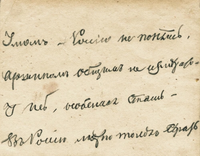 Умомъ — Россію не понять,
Аршиномъ общимъ не измѣрить —
У ней, особенная стать —
Въ Россію можно только вѣрить